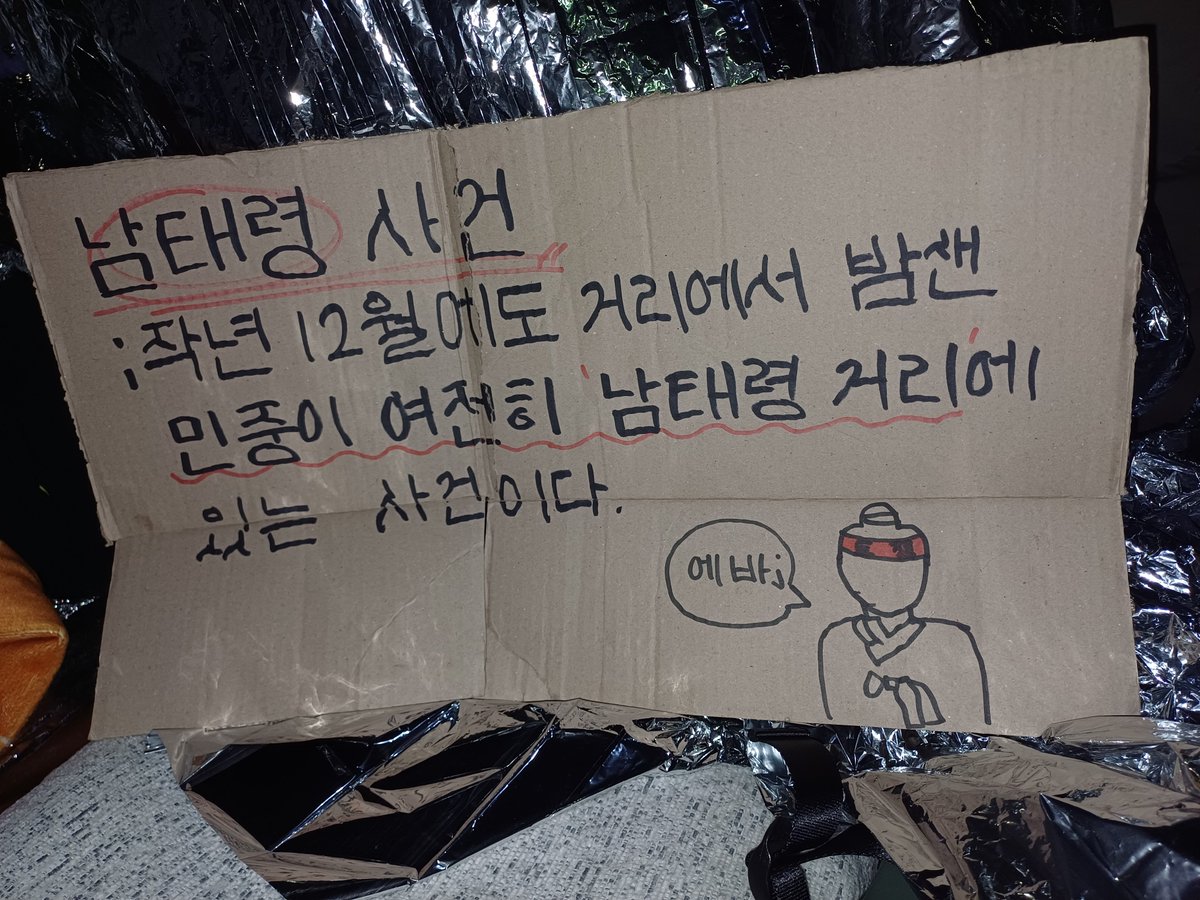 남태령 사건
;작년 12월에도 거리에서 밤샌
민중이 여전히 '남태령 거리'에
있는 사건이다.
에바;